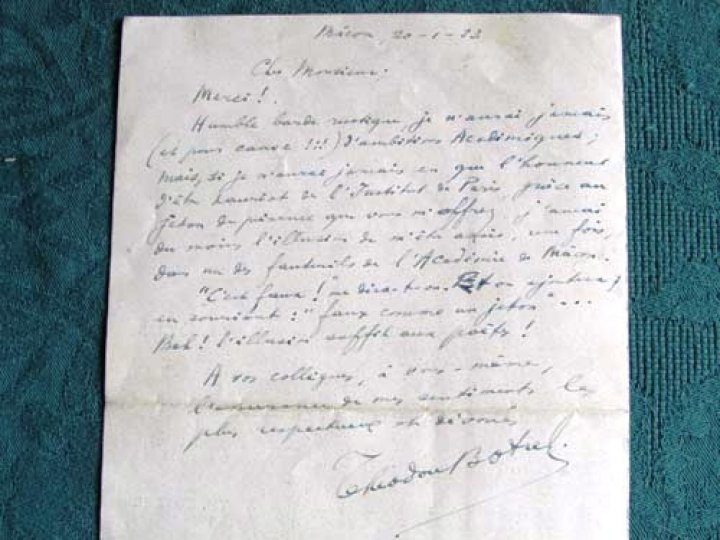 Mâcon, 20-1-23
Cher Monsieur.
Merci !
Humble barde rustique, je n'aurai jamais
(et pour cause !!!) d'ambitions Académiques ;
Mais, si je n'aurai jamais eu que l'honneur
d'être Lauréat de l'Institut de Paris, grâce au
jeton de présence que vous m'offrez, j'aurai
du moins l'illusion de m'être assis, une fois,
dans un des fauteuils de l'Académie de Mâcon.
"C'est faux ! me dira-t-on. Et on ajoutera,
en souriant : "faux comme un jeton"...
Bah ! l'illusion suffit aux poëtes !
A vos collègues, à vous-même,
l'assurance de mes sentiments les
plus respectueux et dévoués
Théodore Botrel.